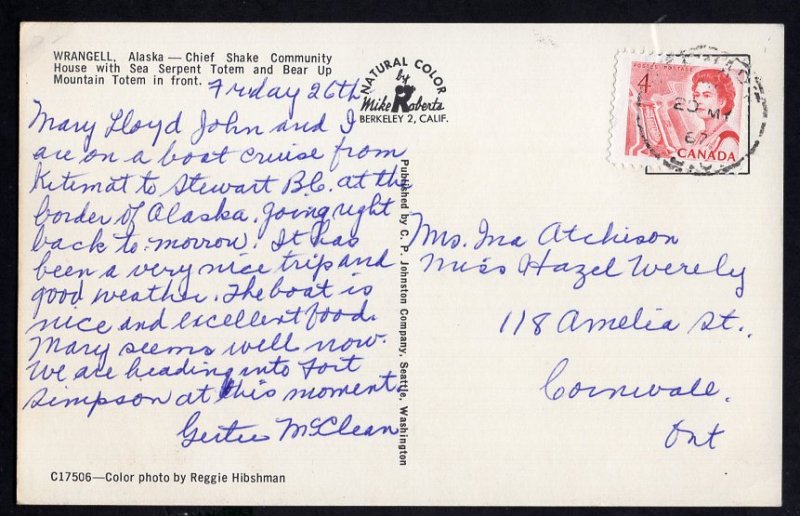 WRANGELL, Alaska — Chief Shake Community
House with Sea Serpent Totem and Bear Up
Mountain Totem in front.
Friday 26th
Mary Lloyd John and I
are on a boat cruise from
Kitimat to Stewart B.C. at the
border of Alaska. Going right
back to-morrow. It has
been a very nice trip and
good weather. The boat is
nice and excellent food.
Mary seems well now.
We are heading into Fort
Simpson at this moment.
Gertie McClean
C17506—Color photo by Reggie Hibshman
NATURAL COLOR
by
Mike Roberts
BERKELEY 2, CALIF.
Published by C. P. Johnston Company, Seattle, Washington
POSTES POSTAGE
4
CANADA
67
Mrs. Ina Atchison
Miss Hazel Werely
118 Amelia St.,
Cornwall.
Ont